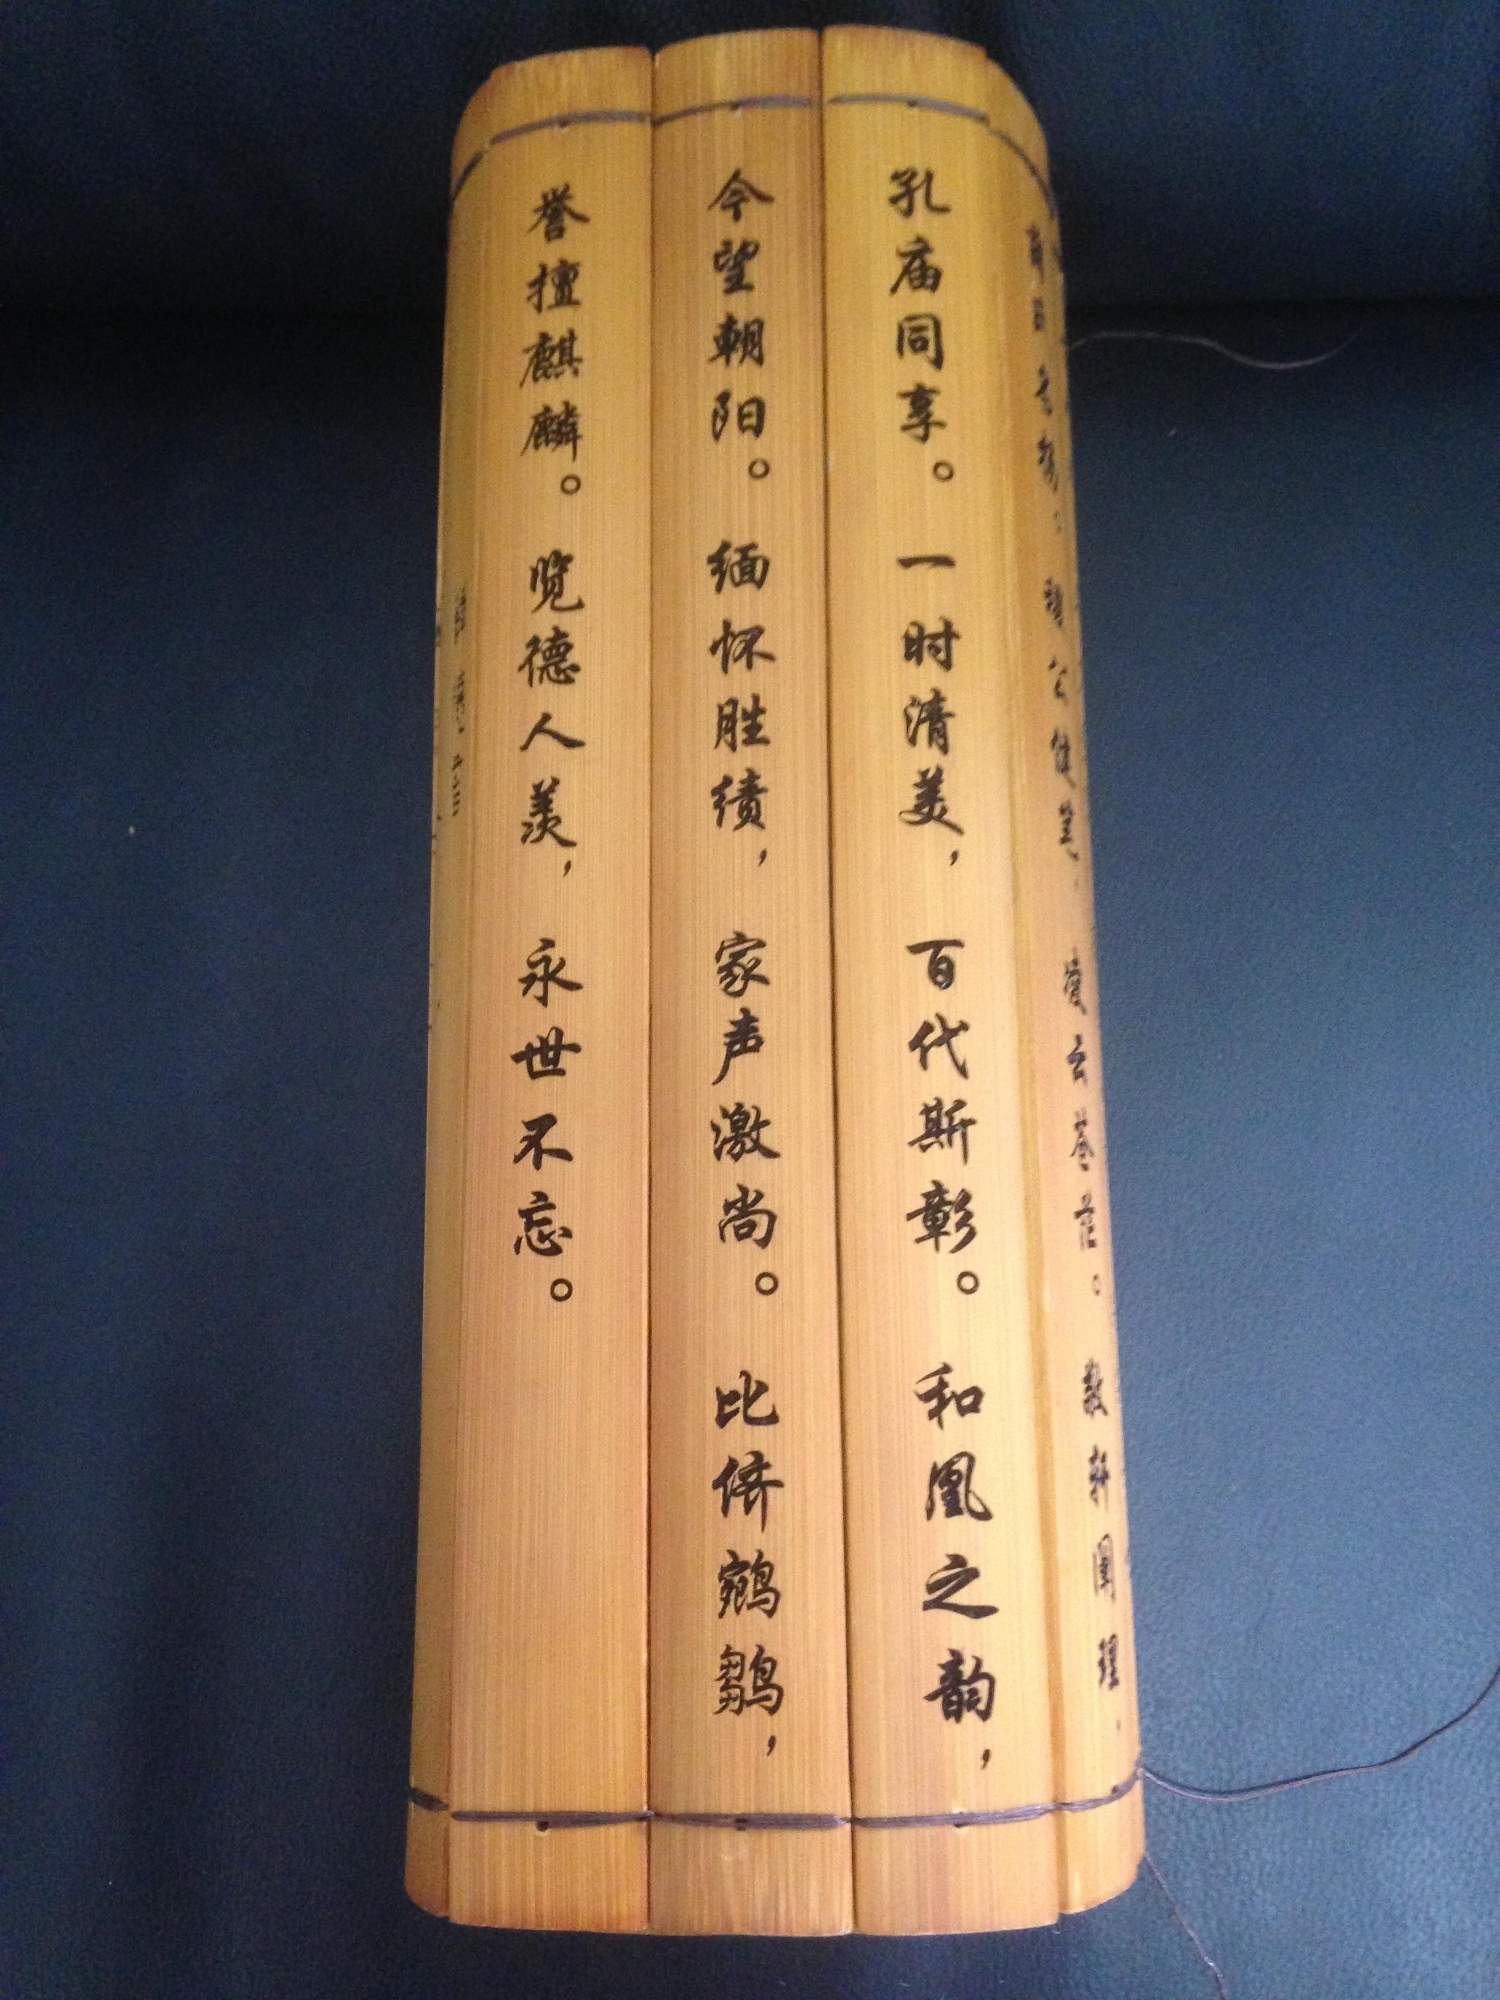 凌云苍茫。敦轩阁理，
孔庙同享。一时清美，百代斯彰。和凰之韵，
令望朝阳。缅怀胜绩，家声激尚。比侪鹓鶵，
誉擅麒麟。览德人羡，永世不忘。